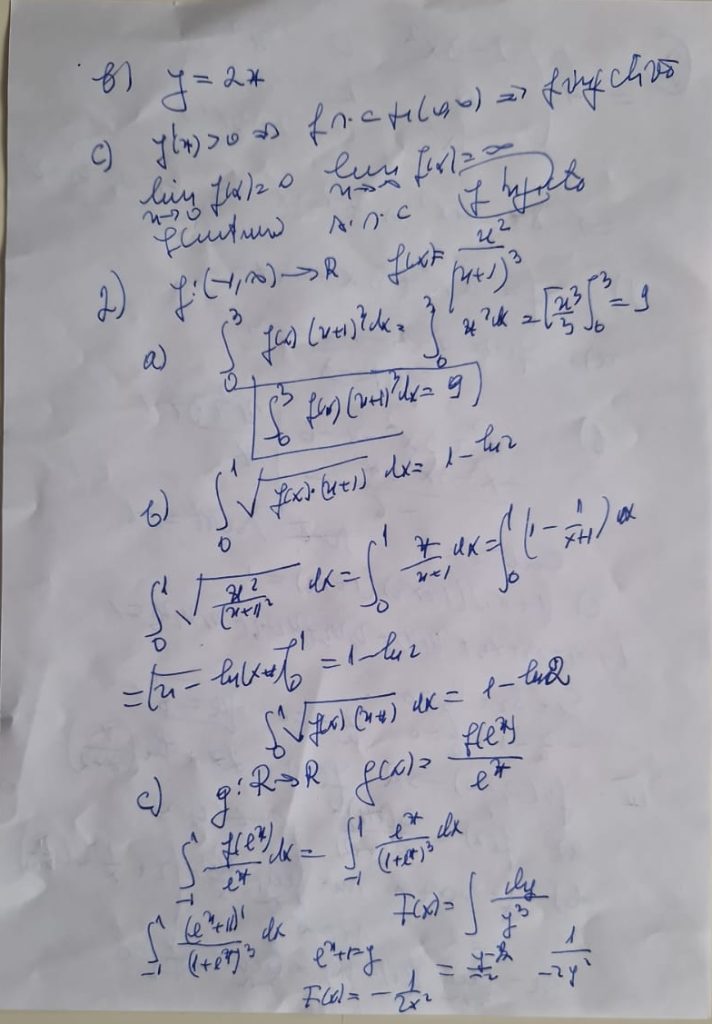 b) y = 2x
c) f'(x) > 0 ⇒ f s.c. (0,∞) ⇒ f injectivă
lim x→0 f(x) = 0 lim x→∞ f(x) = ∞
f continuă s.c.
2) f:(-1,∞) → R f(x) = x²/(x+1)³
a) ∫₀³ f(x) (x+1)³ dx = ∫₀³ x² dx = [x³/3]₀³ = 9
∫₀³ f(x) (x+1)³ dx = 9
b) ∫₀¹ √(f(x)·(x+1)) dx = 1 - ln2
∫₀¹ √(x²/(x+1)²) dx = ∫₀¹ x/(x+1) dx = ∫₀¹ (1 - 1/(x+1)) dx
= [x - ln(x+1)]₀¹ = 1 - ln2
∫₀¹ √(f(x)(x+1)) dx = 1 - ln2
c) g: R→R g(x) = f(eˣ)/eˣ
∫₋₁¹ f(eˣ)/eˣ dx = ∫₋₁¹ eˣ/(1+eˣ)³ dx
∫₋₁¹ (eˣ+1)'/(1+eˣ)³ dx eˣ+1=y F(x) = ∫ dy/y³
= y⁻²/-2 1/-2y²
F(x) = - 1/2x²